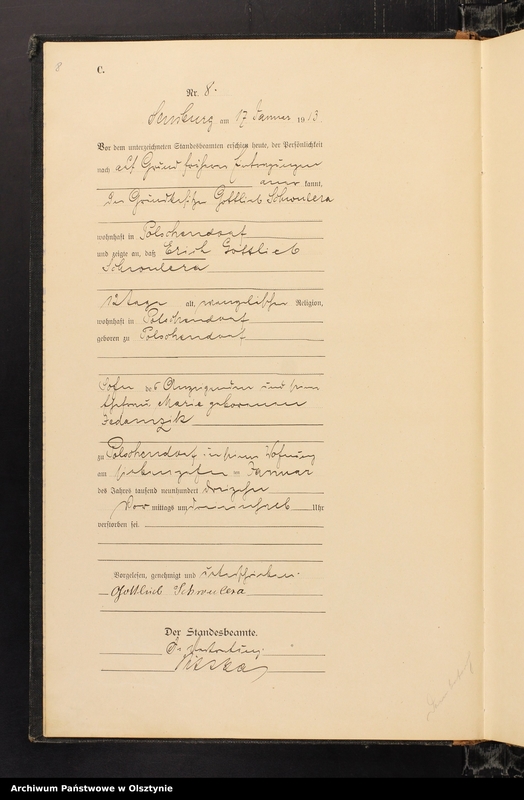 8
C.
Nr. 8.
Sensburg am 17 Januar 1913.
Vor dem unterzeichneten Standesbeamten erschien heute, der Persönlichkeit
nach auf Grund früherer Eintragungen
aner kannt,
der Grundbesitzer Gottlieb
wohnhaft in Polschendorf
und zeigte an, daß Erich Gottlieb
12 Tage alt, evangelischer Religion,
wohnhaft in Polschendorf
geboren zu Polschendorf
Sohn des Anzeigenden und seiner
Ehefrau Marie geborenen
Jedamzik
zu Polschendorf in seiner Wohnung
am siebenzehnten Januar
des Jahres tausend neunhundert dreizehn
Vor mittags um Uhr
verstorben sei.
Vorgelesen, genehmigt und unterschrieben.
Gottlieb
Der Standesbeamte.
In Vertretung.
Archiwum Państwowe w Olsztynie